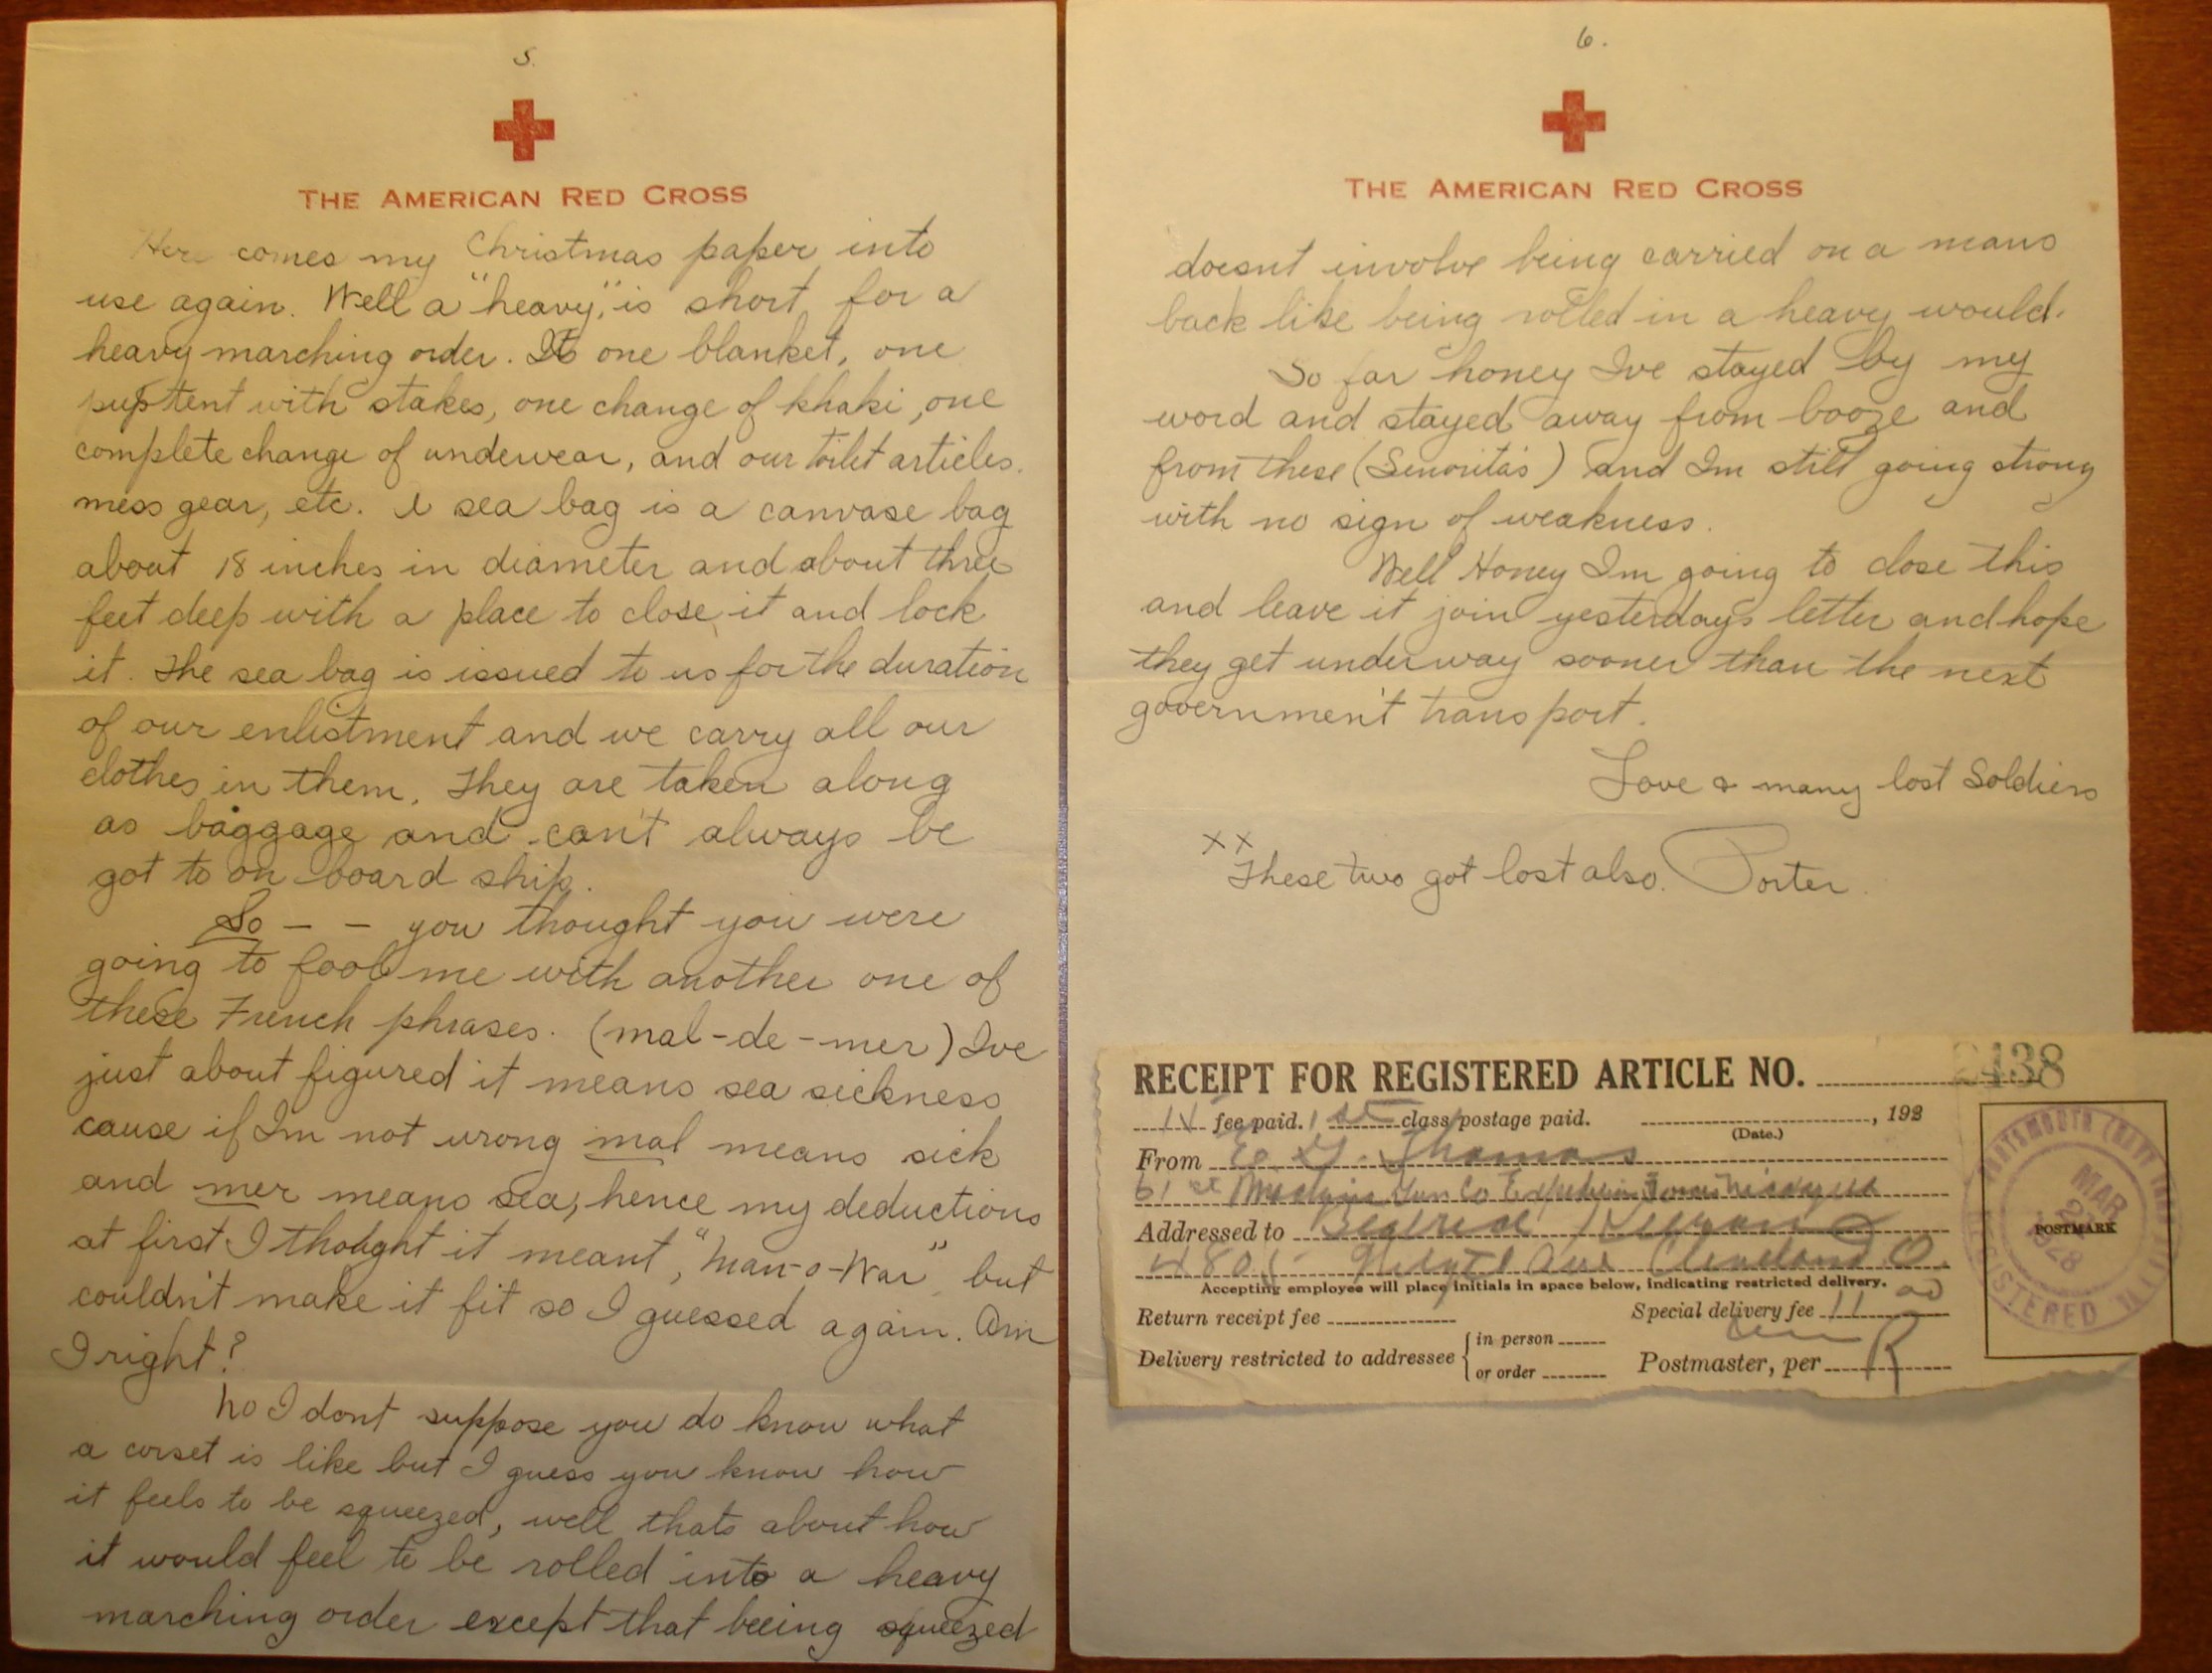 5.
THE AMERICAN RED CROSS
Here comes my Christmas paper into
use again. Well a "heavy," is short for a
heavy marching order. Its one blanket, one
pup tent with stakes, one change of khaki, one
complete change of underwear, and our toilet articles.
mess gear, etc. A sea bag is a canvase bag
about 18 inches in diameter and about three
feet deep with a place to close it and lock
it. The sea bag is issued to us for the duration
of our enlistment and we carry all our
clothes in them. They are taken along
as baggage and can't always be
got to on board ship.
So - - you thought you were
going to fool me with another one of
these French phrases. (mal-de-mer) Ive
just about figured it means sea sickness
cause if Im not wrong mal means sick
and mer means sea, hence my deductions
at first I thought it meant, "Man-o-War" but
couldn't make it fit so I guessed again. Am
I right?
No I dont suppose you do know what
a corset is like but I guess you know how
it feels to be squeezed, well thats about how
it would feel to be rolled into a heavy
marching order except that beeing squeezed
6.
THE AMERICAN RED CROSS
doesnt involve being carried on a mans
back like being rolled in a heavy would.
So far honey Ive stayed by my
word and stayed away from booze and
from these (Senorita's) and Im still going strong
with no sign of weakness.
Well Honey Im going to close this
and leave it join yesterday's letter and hope
they get underway sooner than the next
governmen't transport.
Love & many lost Soldiers
xx
These two got lost also. Porter
RECEIPT FOR REGISTERED ARTICLE NO. 2438
fee paid. 1st class postage paid. , 192
(Date.)
From E. G. Thomas
61st Machine Gun Co Expedition Forces Nicaragua
Addressed to
Ave Cleveland O.
Accepting employee will place initials in space below, indicating restricted delivery.
Return receipt fee Special delivery fee
Delivery restricted to addressee in person
or order
Postmaster, per
POSTMARK
PORTSMOUTH
MAR
1928
REGISTERED